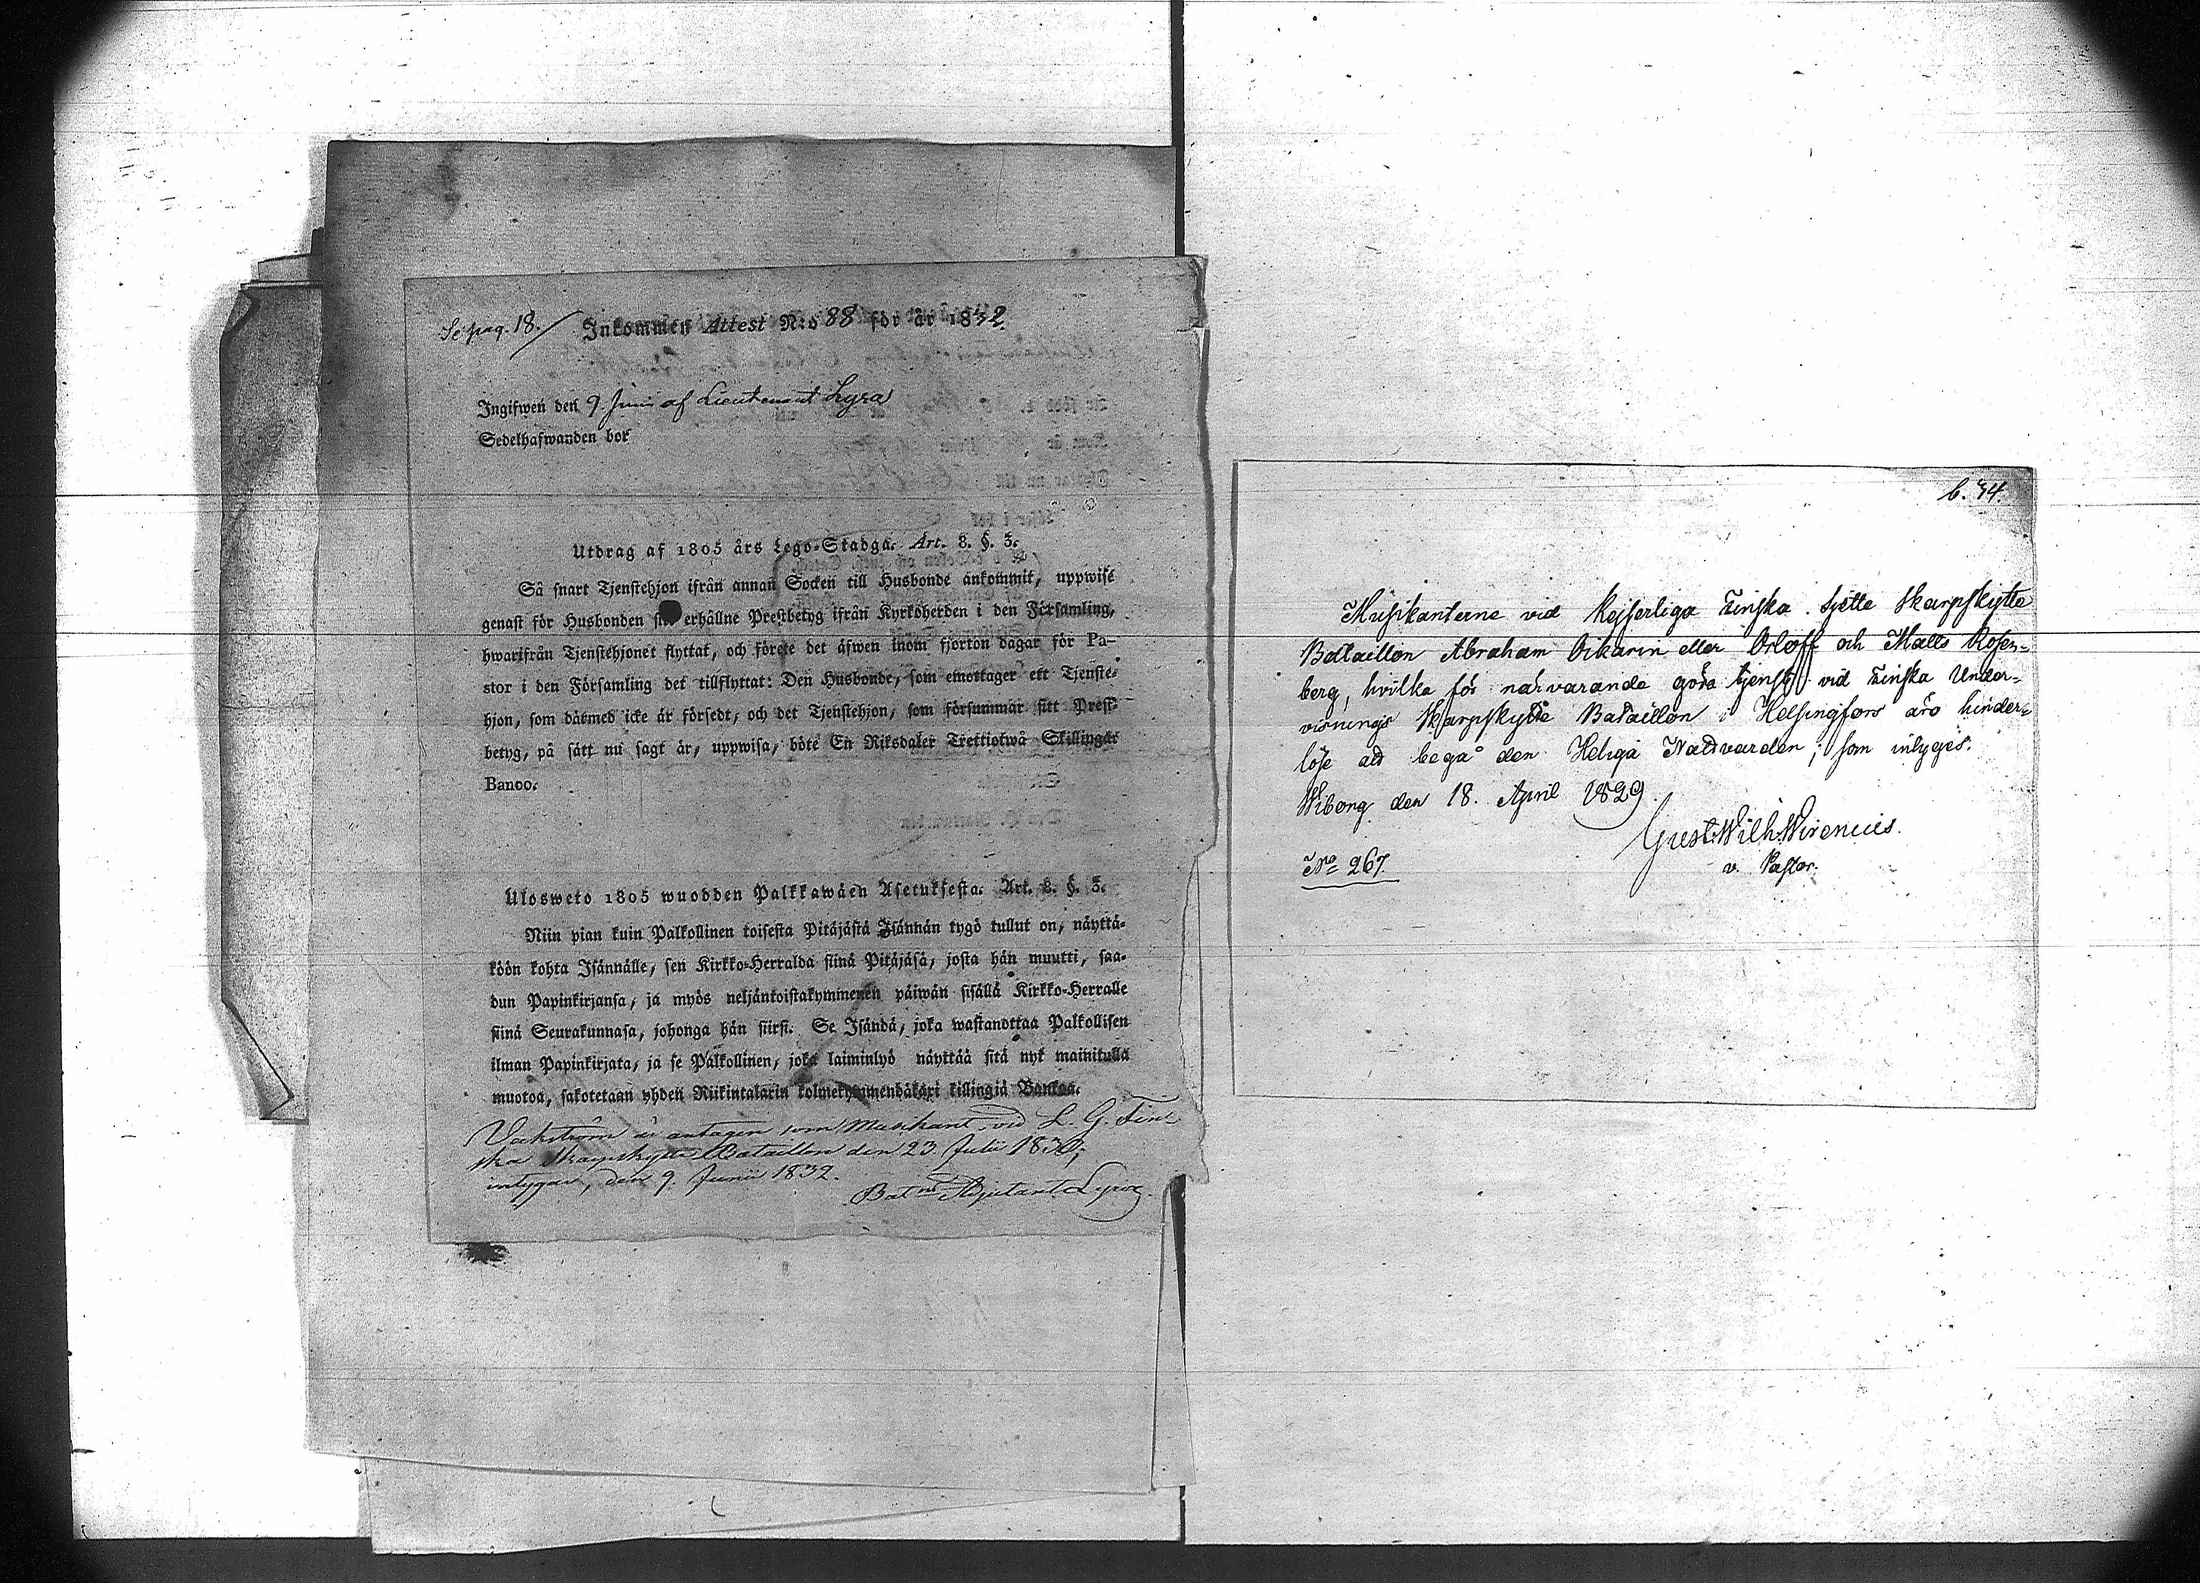 Se pag. 18.
Inkommen Attest N:o 88 för år 1832
Ingifwen den 9 Junii af Lieutenant Lyra
Sedelhafwanden bor
Utdrag af 1805 års Lego-Stadga. Art. 8. §. 3.
Så snart Tjenstehjon ifrån annan Socken till Husbonde ankommit, uppwise
genast för Husbonden erhållne Prestbetyg ifrån Kyrkoherden i den Församling,
hwarifrån Tjenstehjonet flyttat, och förete det äfwen inom fjorton dagar för Pa-
stor i den Församling det tillflyttat: Den Husbonde, som emottager ett Tjenste-
hjon, som dåmed icke är försedt, och det Tjenstehjon, som försummar sitt Prest-
betyg, på sätt nu sagt är, uppwisa, böte En Riksdaler Trettiotwå Skillingar
Banco.
Ulosweto 1805 wuodden Palkkawäen Asetuksesta. Art. 8. §. 3.
Niin pian kuin Palkollinen toisesta Pitäjästä Isännän tygö tullut on, näyttä-
köön kohta Isännälle, sen Kirkko-Herralda siinä Pitäjäsä, josta hän muutti, saa-
dun Papinkirjansa, ja myös neljäntoistakymmenen päiwän sisällä Kirkko-Herralle
siinä Seurakunnasa, johonga hän siirsi. Se Isändä, joka wastanottaa Palkollisen
ilman Papinkirjata, ja se Palkollinen, joka laiminlyö näyttää sitä nyt mainitulla
muotoa, sakotetaan yhden Riikintalarin kolmekymmendäkaxi killingiä Bankoa.
är antagen som Musikant vid L. G. Fin-
ska Skarpskytte Bataillon den 23 Julii 1830,
intygar, den 9. Junii 1832.
Bat:ns Adjutant Lyra.
b. 34.
Musikanterne vid Kejserliga Finska Sjette Skarpskytte
Bataillon Abraham Oikarin eller Orloff och Matts Rosen-
berg, hvilka för närvarande göra tjenst vid Finska Under-
visnings Skarpskytte Bataillon i Helsingfors äro hinder-
löse att begå den Heliga Nattvarden; som intyges.
Wiborg den 18. April 1829.
Gust. Wilh. Wirenius.
v. Pastor.
No 267.